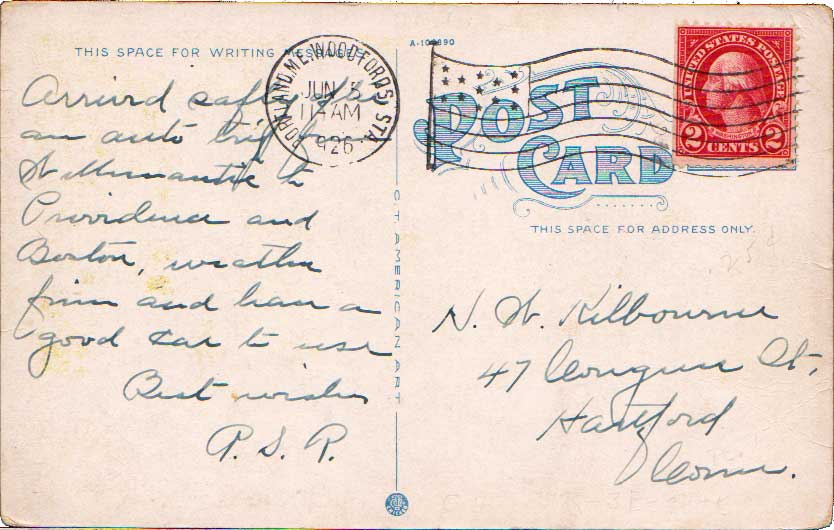 THIS SPACE FOR WRITING MESSAGE
Arrived safely
an auto trip
Willimantic to
Providence and
Boston, weather
fine and have a
good car to use
Best wishes
P. S. R.
PORTLAND, ME. WOODFORDS STA.
JUN 5
11 AM
1926
A-109890
POST
CARD
UNITED STATES POSTAGE
WASHINGTON
2 CENTS 2
THIS SPACE FOR ADDRESS ONLY.
25¢
N. W. Kilbourne
47 Congress St.,
Hartford
Conn.
C.T. AMERICAN ART